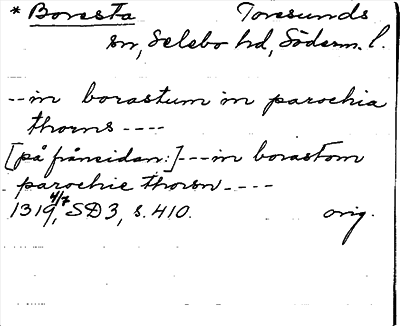 * Boresta Toresunds
sn, Selebo hd, Söderm. l.
-- in borastum in parochia
thorns ----
[på frånsidan:] --- in borastom
parochie thorsn ----
1319 4/7, SD 3, s. 410. orig.